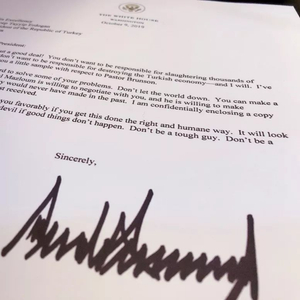 THE WHITE HOUSE
WASHINGTON
October 9, 2019
Excellency
Tayyip Erdogan
of the Republic of Turkey
President:
a good deal! You don't want to be responsible for slaughtering thousands of
don't want to be responsible for destroying the Turkish economy—and I will. I've
you a little sample with respect to Pastor Brunson.
to solve some of your problems. Don't let the world down. You can make a
Mazloum is willing to negotiate with you, and he is willing to make
would never have made in the past. I am confidentially enclosing a copy
received.
you favorably if you get this done the right and humane way. It will look
devil if good things don't happen. Don't be a tough guy. Don't be a
Sincerely,